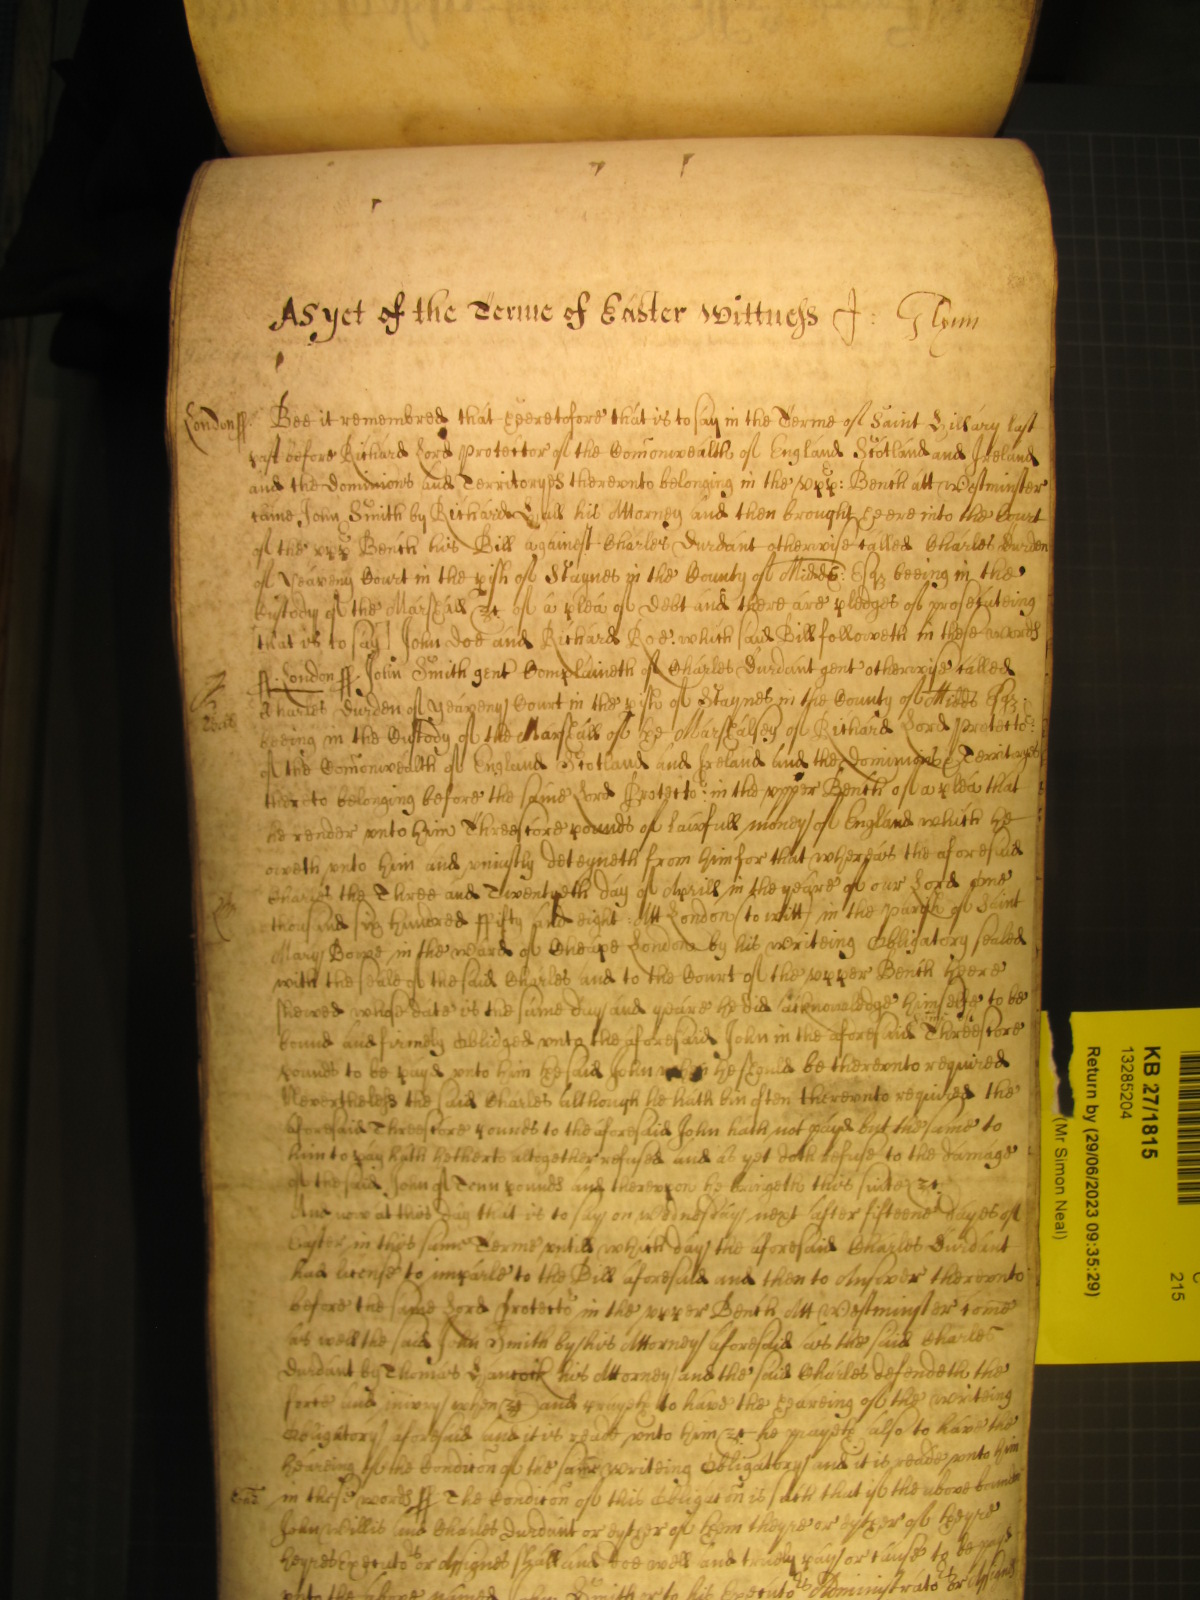 As yet of the Terme of Easter Wittness J: Glynn
London ss. Bee it remembred that heeretofore that is to say in the Terme of Saint Hillary last
past before Richard Lord Protector of the Comonwealth of England Scotland and Ireland
and the Dominions and Territoryes therevnto belonging in the vpp: Bench att Westminster
came John Smith by Richard Hall his Attorney and then brought heere into the Court
of the vpp Bench his Bill against Charles Durdant otherwise called Charles Durden
of Yeaveny Court in the pish of Staynes in the County of Midds: Esqz beeing in the
Custody of the Marshall &c of a plea of Debt and there are pledges of prosecuteing
that is to say John Doe and Richard Roe. which said Bill followeth in these words
ss. London ss. John Smith gent Complaineth of Charles Durdant gent otherwise called
Charles Durden of Yeaveny Court in the pish of Staynes in the County of Midds Esqz
beeing in the Custody of the Marshall of the Marshalsey of Richard Lord Protector
of the Comonwealth of England Scotland and Ireland and the Dominions & Territoryes
thereto belonging before the same Lord Protector in the vpper Bench of a plea that
he render vnto him Threescore pounds of lawfull money of England which he
oweth vnto him and vniustly deteyneth from him for that whereas the aforesaid
Charles the Three and Twentyeth day of Aprill in the yeare of our Lord one
thousand six hundred ffifty and eight Att London (to witt) in the parish of Saint
Mary Bowe in the ward of Cheape London by his writeing Obligatory sealed
with the seale of the said Charles and to the Court of the vpper Bench heere
shewed whose date is the same day and yeare he did acknowledge himselfe to be
bound and firmely Obliged vnto the aforesaid John in the aforesaid Threescore
pounds to be payd vnto him the said John when he should be therevnto required
Nevertheless the said Charles (although he hath bin often therevnto required) the
aforesaid Threescore pounds to the aforesaid John hath not payd but the same to
him to pay hath hitherto altogether refused and as yet doth refuse to the damage
of the said John of Tenn pounds and therevpon he bringeth this suite &c
And now at this day that is to say on Wednesday next after fifteene dayes of
Easter in this same Terme vntill which day the aforesaid Charles Durdant
had license to imparle to the Bill aforesaid and then to Answer therevnto
before the same Lord Protector in the vpper Bench Att Westminster come
as well the said John Smith by his Attorney aforesaid as the said Charles
Durdant by Thomas Hancock his Attorney and the said Charles defendeth the
force and iniury when &c and prayeth to have the heareing of the writeing
Obligatory aforesaid and it is reade vnto him &c he prayeth also to have the
heareing of the Condicon of the same writeing Obligatory and it is reade vnto him
in these words ss The Condicon of this Obligacon is such that if the above bounden
John Willis and Charles Durdant or eyther of them theyre or eyther of theyre
heyres Executors or Assignes shall and doe well and truely pay or cause to be payd
vnto the above named John Smith or to his Executors Administrators or Assignes
KB 27/1815
13285204
Return by (29/06/2023 09:35:29)
(Mr Simon Neal)
215